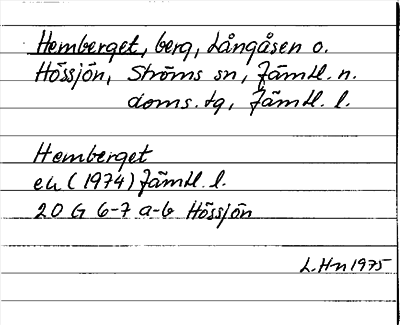 Hemberget, berg, Långåsen o.
Hössjön, Ströms sn, Jämtl. n.
doms.tg, Jämtl. l.
Hemberget
ek (1974) Jämtl. l.
20 G 6-7 a-b Hössjön
L.Hn 1975